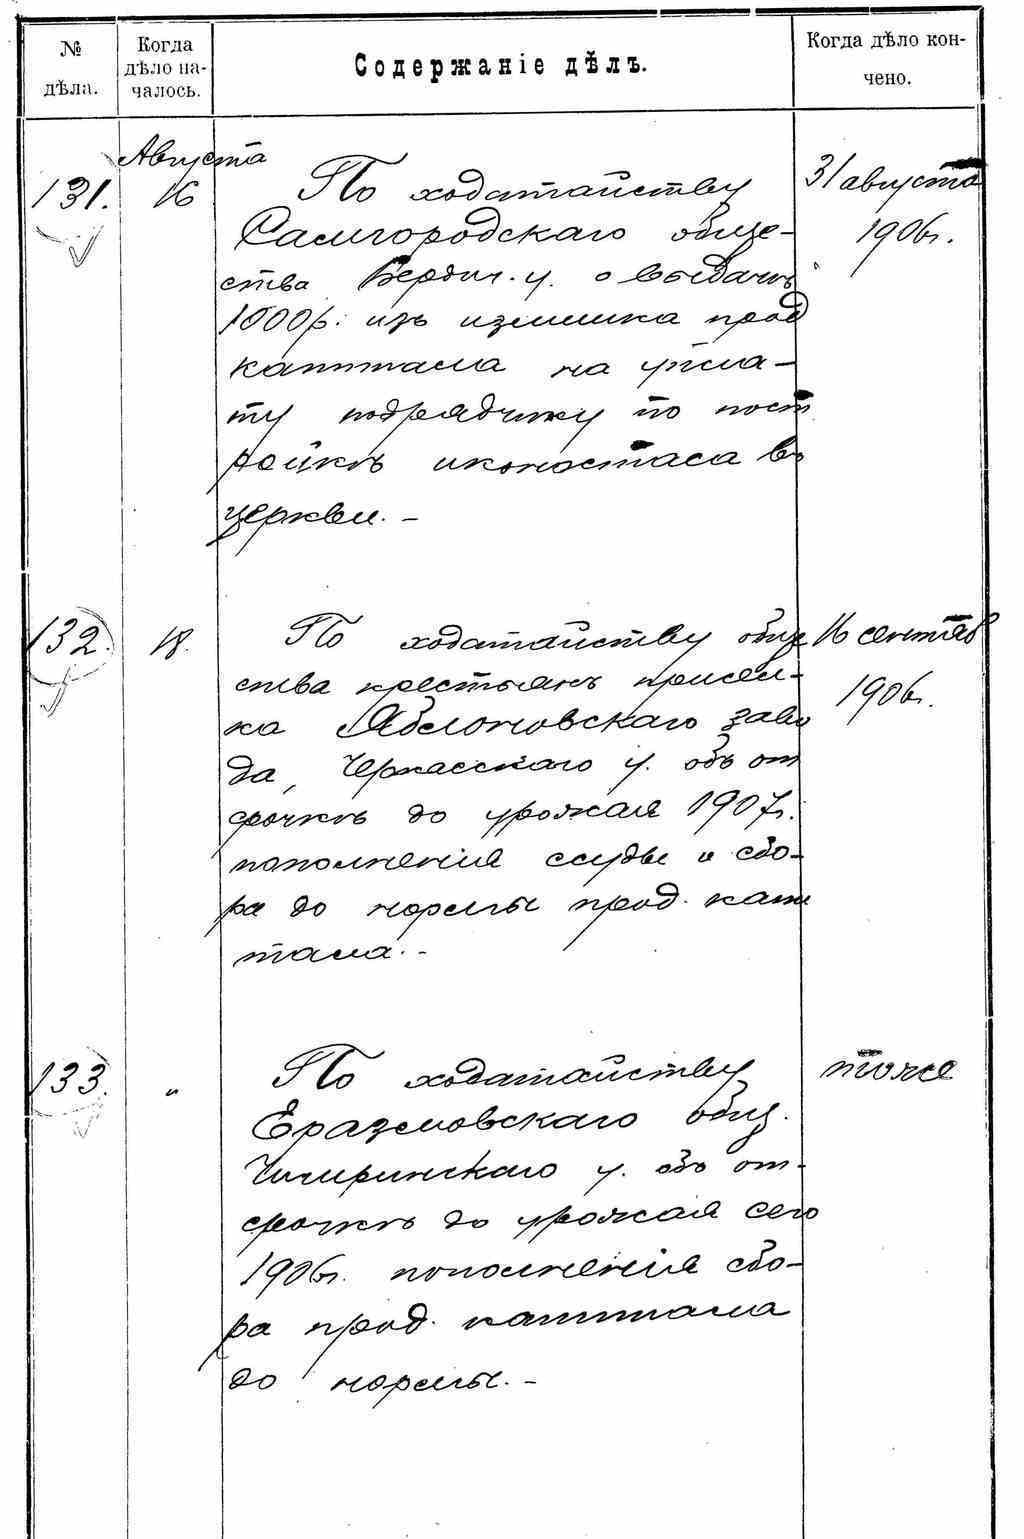 №
дѣла.
Когда
дѣло на-
чалось.
Содержаніе дѣлъ.
Когда дѣло кон-
чено.
Августа
131.
16
По ходатайству
Самгородскаго обще-
ства Бердич. у. о выдачѣ
1000 р. изъ излишка прод
капитала на упла-
ту подрядчику по пост
ройкѣ иконостаса въ
церкви. –
31 августа
1906 г.
132.
18.
По ходатайству общ
ства крестьянъ присел-
ка Яблоновскаго заво
да, Черкасскаго у. объ от
срочкѣ до урожая 1907 г.
пополненія ссуды и сбо-
ра до нормы прод. капи
тала. –
16 сентяб
1906 г.
133.
"
По ходатайству
Еразмовскаго общ.
Чигиринскаго у. объ от-
срочкѣ до урожая сего
1906 г. пополненія сбо-
ра прод. капитала
до нормы. –
тоже